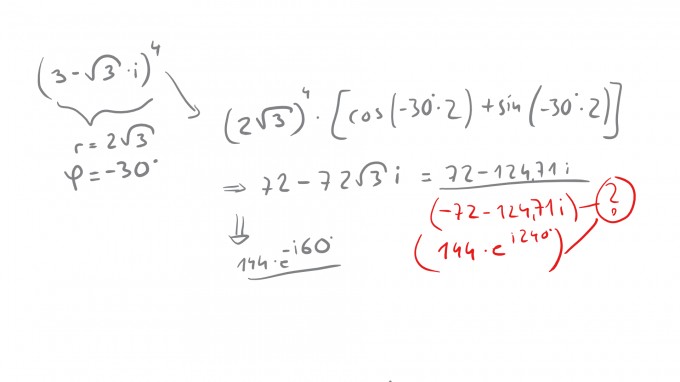 (3 - √3 · i)⁴
r = 2√3
φ = -30°
(2√3)⁴ · [cos(-30° · 2) + sin(-30° · 2)]
⇒ 72 - 72√3 i = 72 - 124,71 i
(-72 - 124,71 i) ?
⇓
144 · e^-i60°
(144 · e^i240°)